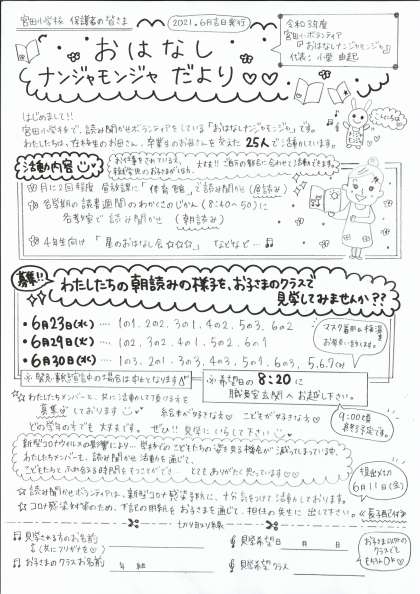 宮田小学校 保護者の皆さま
2021.6月吉日発行
令和3年度
宮田小ボランティア
『おはなしナンジャモンジャ』
代表：小
おはなし
ナンジャモンジャ だより♡♡
はじめまして!!
宮田小学校で、読み聞かせボランティアをしている「おはなしナンジャモンジャ」です。
わたしたちは、在校生のお母さん、卒業生のお母さんを交えた 25人で活動しています。
活動内容
お仕事をされていても、
大丈夫!! ご自分の都合に合わせて活動できます。
月に2回程度 昼休みに「体育館」で読み聞かせ
各学期の読書週間のわかくさのじかん(8:40〜50)に
各教室で読み聞かせ (朝読み)
4年生向け「星のおはなし会☆☆☆」 などなど…
募集!!
わたしたちの朝読みの様子を、お子さまのクラスで
見学してみませんか??
・6月23日(水) …… 1の1. 2の2. 3の1. 4の2. 5の3. 6の2
・6月29日(火) …… 1の2. 2の3. 4の1. 5の2. 6の1
・6月30日(水) …… 1の3. 2の1. 3の3. 4の3. 5の1. 6の3. 5,6,7(わ)
マスク着用&検温を
お願いします。
※緊急事態宣言中の場合は中止となります
※希望日の 8:20に
職員玄関へお越し下さい。
9:00頃
終了予定です。
☆わたしたちメンバーと、共に活動して下さる方を
募集中しております 絵本が好きな方 こどもが好きな方♡
どの学年の方でも大丈夫です。ぜひ!! 見学にいらして下さい。
新型コロナウイルスの影響により… 学校でのこどもたちの姿を見る機会が減ってしまっています。
わたしたちメンバーも、読み聞かせ活動を通じて、
こどもたちとふれ合える時間をもつことができ… とてもありがたく思っています♡♡
☆読み聞かせボランティアは、新型コロナ感染予防に、十分気をつけて活動しております。
☆コロナ感染対策のため、下記の用紙をお子さまを通じて、担任の先生に出して下さい。
提出〆切
6月11日(金)
《長子配付》
キリトリ線
見学される方のお名前
(フリガナを♡)
見学希望日 月 日
お子さまのクラス お名前 年 組
見学希望クラス
お子さま以外の
クラスでも
もちろんOK